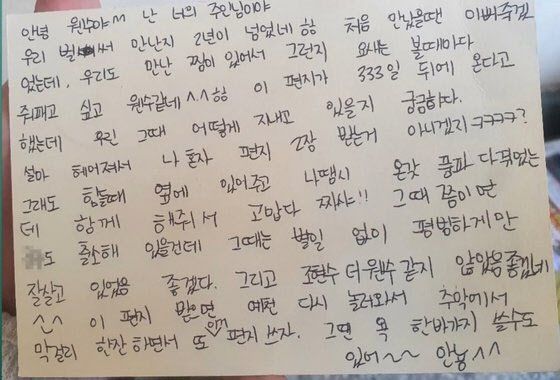 안녕 원수야^^ 난 너의 주인님이야
우리 벌써 만난지 2년이 넘었네 ㅎ 처음 만났을땐 이뻐죽겠
었는데, 우리도 만난 짬이 있어서 그런지 요새는 볼때마다
줘패고 싶고 원수같네^^ㅎ 이 편지가 333일 뒤에 온다고
했는데 우린 그때 어떻게 지내고 있을지 궁금하다.
설마 헤어져서 나 혼자 편지 2장 받는거 아니겠지ㅋㅋㅋㅋ?
그래도 힘들때 옆에 있어주고 나땜시 온갖 풍파 다 겪었는
데 함께 해줘서 고맙다 짜샤!! 그때 쯤이면
도 출소해 있을건데 그때는 별일 없이 평범하게만
잘살고 있었음 좋겠다. 그리고 조현수 더 원수 같지 않았음 좋겠네
^^ 이 편지 받으면 예전 다시 놀러와서 주막에서
막걸리 한잔 하면서 또 편지 쓰자. 그땐 욕 한바가지 쓸수도
있어~~ 안뇽^^